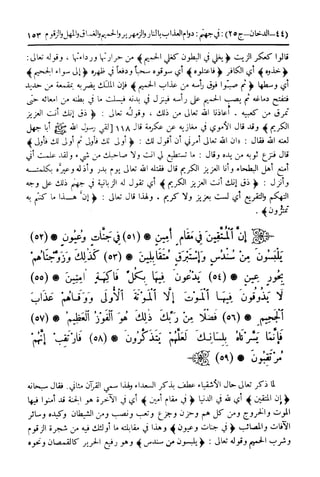 (٤٤ – الدخان – ج٢٥) : في جهنم : دوام العذاب بالنار والزمهرير والحميم والغساق والمهل والزقوم ١٥٣
قالوا كعكر الزيت ﴿ يغلي في البطون كغلي الحميم ﴾ من حرارتها ورداءتها ، وقوله تعالى:
﴿ خذوه ﴾ أي الكافر ﴿ فاعتلوه ﴾ أي سوقوه سحباً ودفعاً في ظهره ﴿ إلى سواء الجحيم ﴾
أي وسطها ﴿ ثم صبوا فوق رأسه من عذاب الحميم ﴾ فإن الملك يضربه بمقمعة من حديد
فتفتح دماغه ثم يصب الحميم على رأسه فينزل في بدنه فيسلت ما في بطنه من أمعائه حتى
تمرق من كعبيه . أعاذنا الله تعالى من ذلك ، وقوله تعالى: ﴿ ذق إنك أنت العزيز
الكريم ﴾ وقد قال الأموي في مغازيه عن عكرمة قال ١١٨ لقي رسول الله ﷺ أبا جهل
لعنه الله فقال : «إن الله تعالى أمرني أن أقول لك : ﴿ أولى لك فأولى ثم أولى لك فأولى ﴾
قال فنزع ثوبه من يده وقال : ما تستطيع لي أنت ولا صاحبك من شيء ولقد علمت أني
أمنع أهل البطحاء وأنا العزيز الكريم قال فقتله الله تعالى يوم بدر وأذله وعيره بكلمتـه
وأنزل : ﴿ ذق إنك أنت العزيز الكريم ﴾ أي تقول له الزبانية في جهنم ذلك على وجه
التهكم والتقريع أي لست بعزيز ولا كريم ، ولهذا قال تعالى : ﴿ إن هـذا ما كنتم به
تمترون ﴾ .
إِنَّ الْمُتَّقِينَ فِي مَقَامٍ أَمِينٍ (٥١) فِي جَنَّاتٍ وَعُيُونٍ (٥٢)
يَلْبَسُونَ مِن سُندُسٍ وَإِسْتَبْرَقٍ مُّتَقَابِلِينَ (٥٣) كَذَلِكَ وَزَوَّجْنَاهُم
بِحُورٍ عِينٍ (٥٤) يَدْعُونَ فِيهَا بِكُلِّ فَاكِهَةٍ آمِنِينَ (٥٥)
لَا يَذُوقُونَ فِيهَا الْمَوْتَ إِلَّا الْمَوْتَةَ الْأُولَى وَوَقَاهُمْ عَذَابَ
الْجَحِيمِ (٥٦) فَضْلًا مِّن رَّبِّكَ ذَلِكَ هُوَ الْفَوْزُ الْعَظِيمُ (٥٧)
فَإِنَّمَا يَسَّرْنَاهُ بِلِسَانِكَ لَعَلَّهُمْ يَتَذَكَّرُونَ (٥٨) فَارْتَقِبْ إِنَّهُم
مُّرْتَقِبُونَ (٥٩)
لما ذكر تعالى حال الأشقياء عطف بذكر السعداء ولهذا سمي القرآن مثاني. فقال سبحانه
﴿ إن المتقين ﴾ أي لله في الدنيا ﴿ في مقام أمين ﴾ أي في الآخرة هو الجنة قد أمنوا فيها
الموت والخروج ومن كل هم وحزن وجزع وتعب ونصب ومن الشيطان وكيده وسائر
الآفات والمصائب ﴿ في جنات وعيون ﴾ وهذا في مقابلته ما أولئك فيه من شجرة الزقوم
وشرب الحميم وقوله تعالى : ﴿ يلبسون من سندس ﴾ وهو رفيع الحرير كالقمصان ونحوه